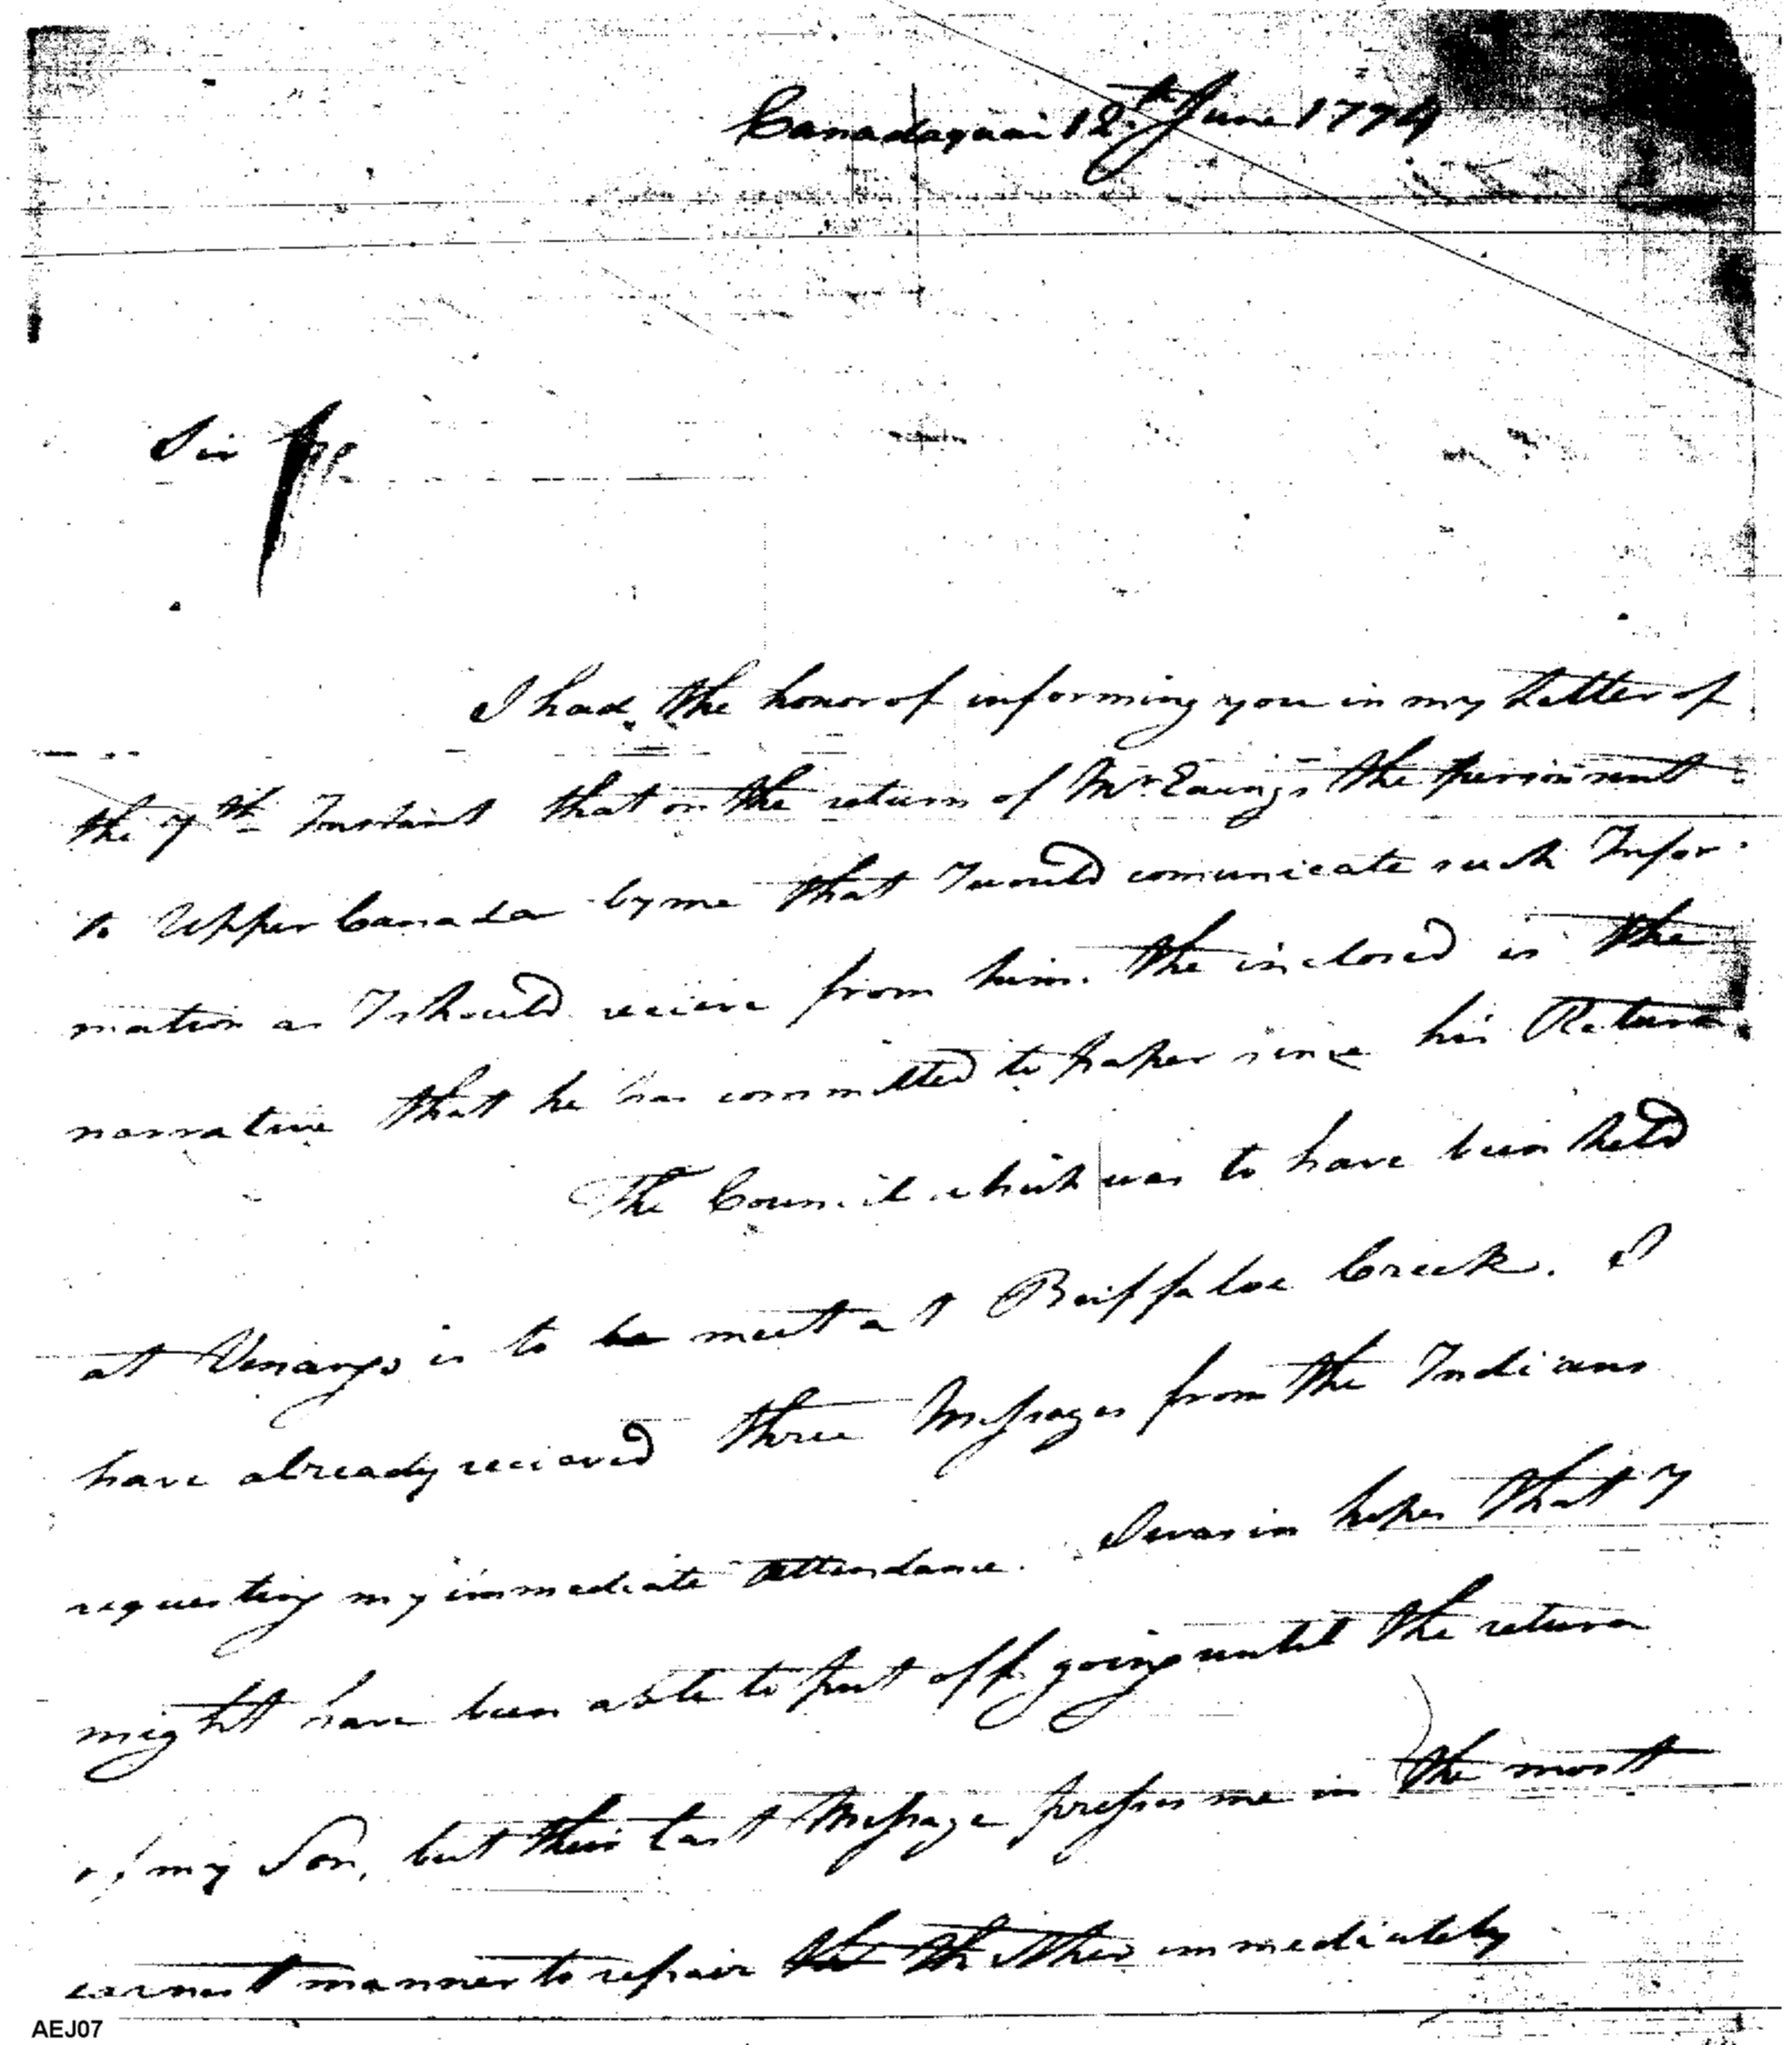 Canadaquai 12th June 1794
Sir
I had the honor of informing you in my Letter of
the 7th Instant that on the return of Mr Ewings the person sent
to Upper Canada by me that I would comunicate such Infor
mation as I should recieve from him. The inclosed is the
narrative that he has committed to paper since his Return
The Council which was to have been held
at Venango is to be meet at Buffaloe Creek. I
have already recieved three Messages from the Indians
requesting my immediate attendance. I was in hopes that I
might have been able to put off going until the return
of my Son, but their last Message presses me in the most
earnest manner to repair thither immediately
AEJ07